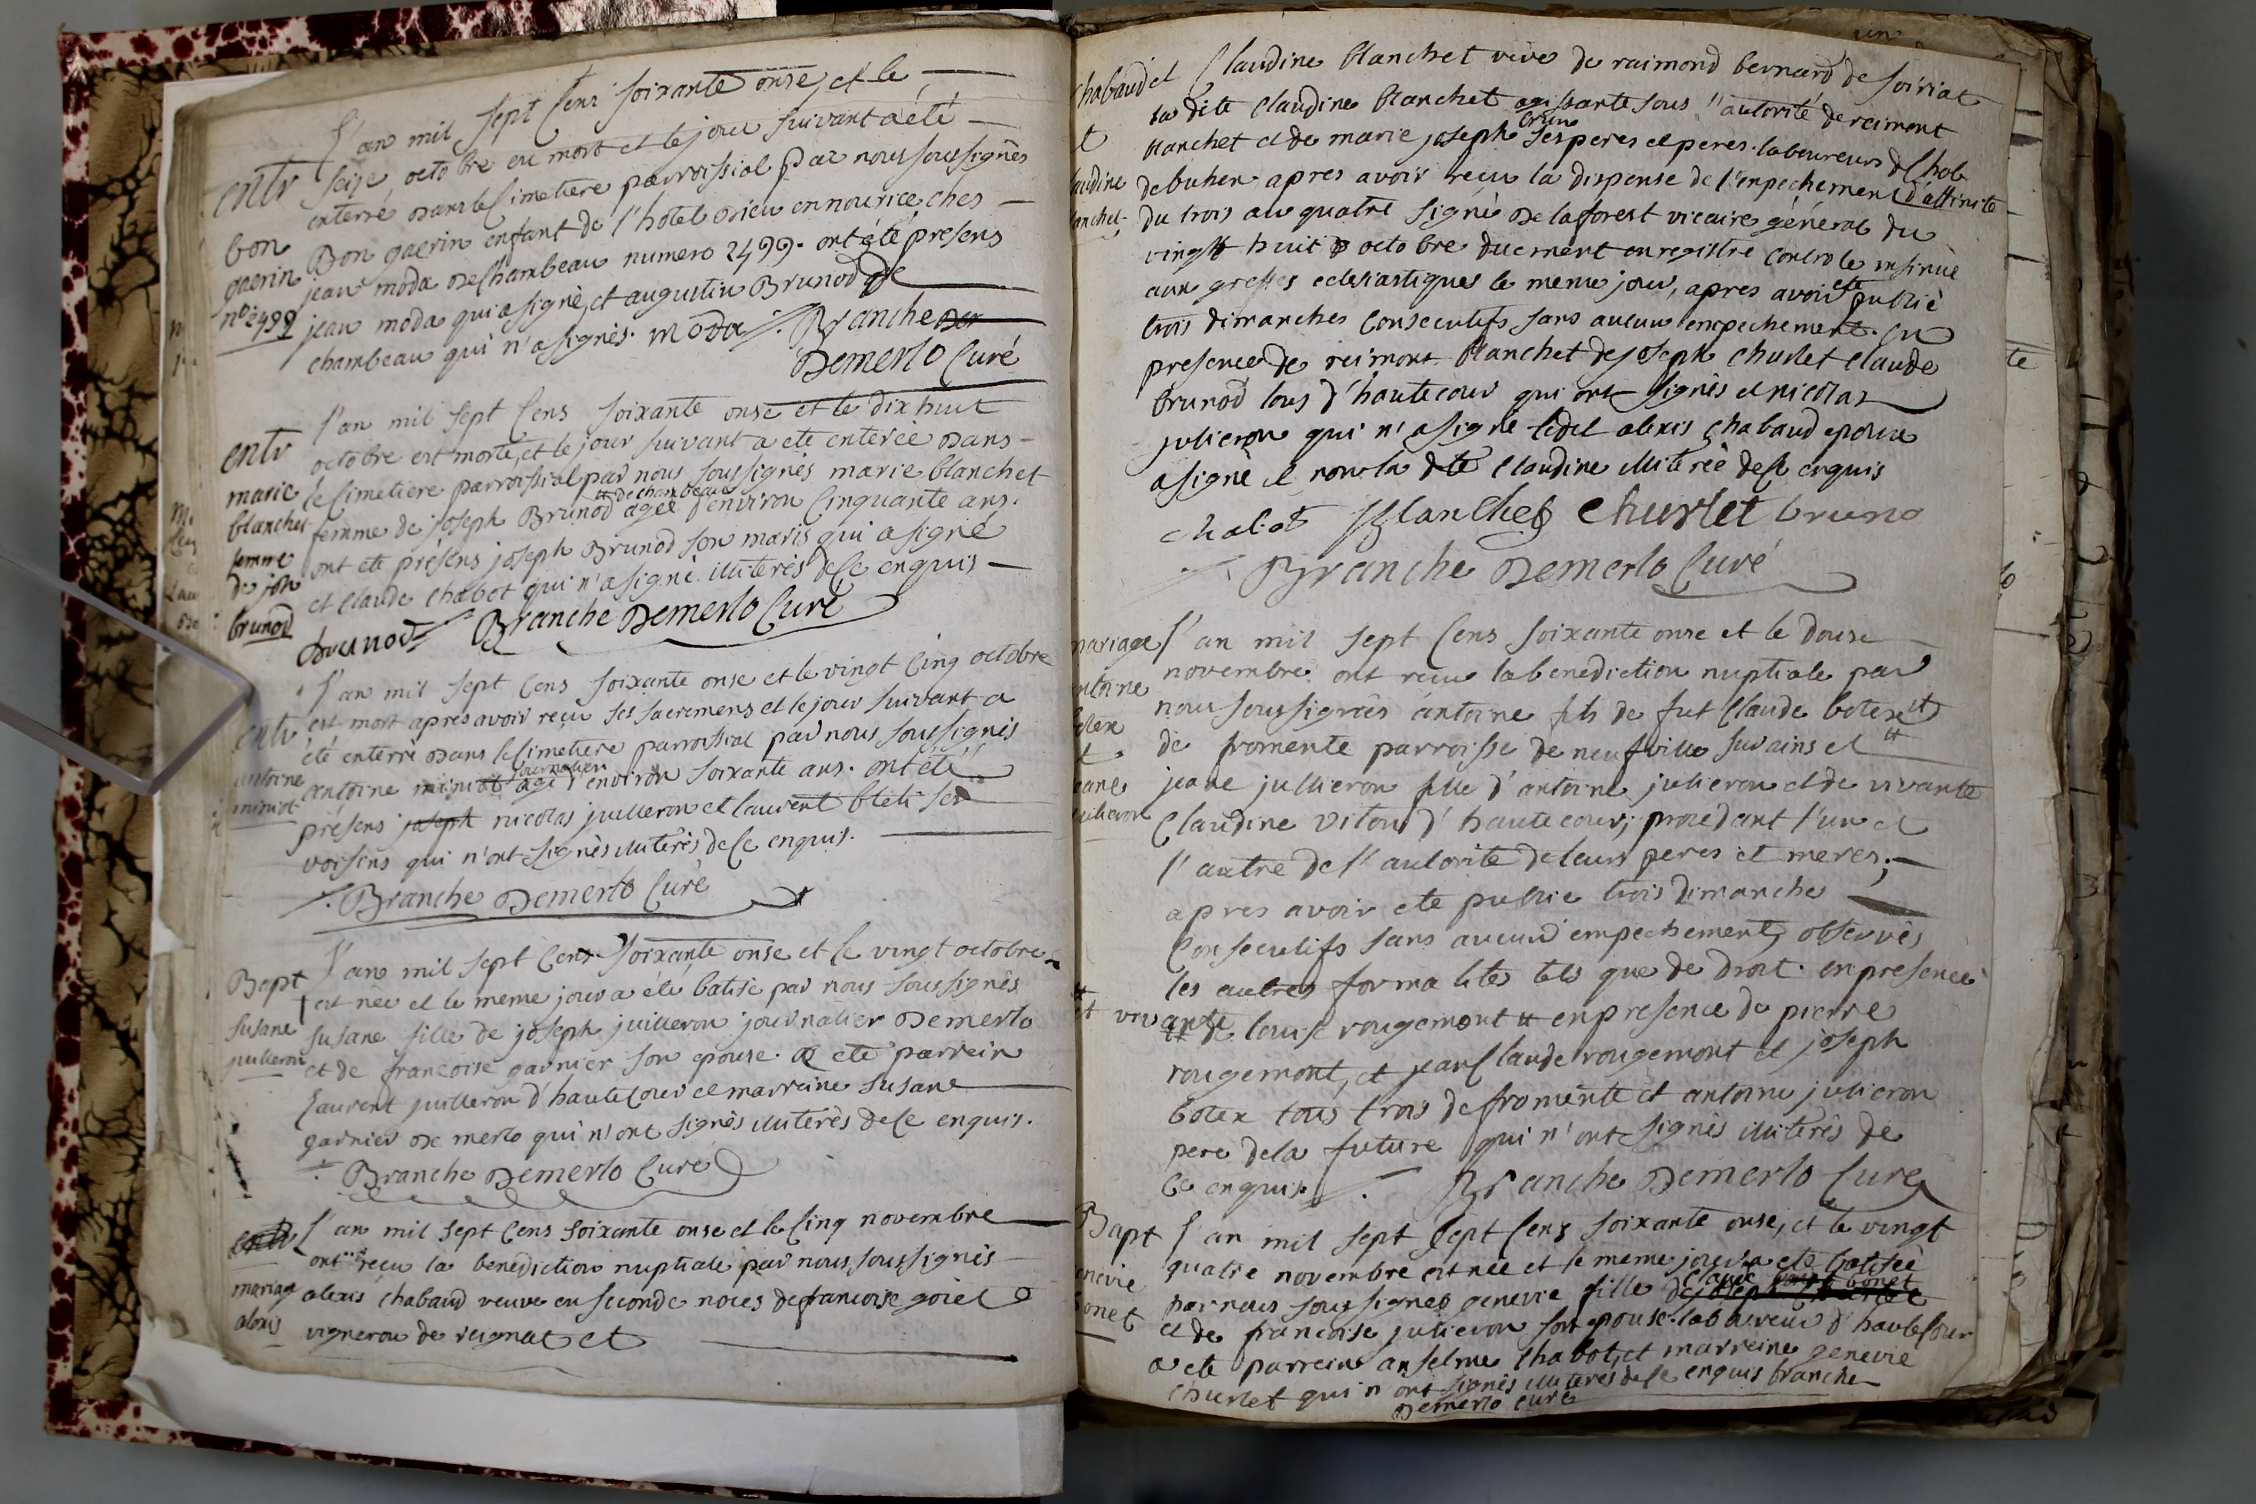 L'an mil sept cens soixante onse, et le
seize octobre est mort et le jour suivant a été
enterré dans le cimetiere parroissial par nous soussignès
Bon gaerin enfant de l'hotel dieu en nourice ches
jean moda de chambeau numero 2499. ont été presens
jean moda qui a signé, et augustin Brunod de
chambeau qui n'a signès. moda Branche
Demerlo Curé
entr
bon
gaerin
no 2499
l'an mil sept cens soixante onse et le dix huit
octobre est morte, et le jour suivant a ete enterèe dans
le cimetiere parroissial par nous soussignès marie blanchet
femme de joseph Brunod agèe d'environ cinquante ans.
tt de chambeau
ont ete présens joseph Brunod son maris qui a signé
et claude chabot qui n'a signè illiterès de ce enquis
brunod Branche Demerlo Curé
entr
marie
blanchet
femme
de jos
brunod
l'an mil sept cens soixante onse et le vingt cinq octobre
est mort apres avoir reçu ses sacremens et le jour suivant a
été enterrè dans le cimetiere parroissial par nous soussignès
antoine miniot agé d'environ soixante ans. ont été
journalier
présens joseph nicolas juilleron et laurent bleti ses
voisins qui n'ont signès illiterès de ce enquis.
Branche Demerlo Curè
entr
antoine
miniot
l'an mil sept cens soixante onse et le vingt octobre
est nèe et le meme jour a été batisé par nous soussignès
susane fille de joseph juilleron journalier Demerlo
et de francoise garnier son epouse. a ete parrein
Laurent juilleron d'hautecour et marreine susane
garnier de merlo qui n'ont signès illiterès de ce enquis.
Branche Demerlo Curé
Bapt
susane
julieron
l'an mil sept cens soixante onse et le cinq novembre
ont reçu la benediction nuptiale par nous soussignès
alexis chabaud veuve en seconde noces de francoise goiel
vigneron de reignat et
entr
mariage
alexis
chabaud et
et
claudine
blanchet
Claudine blanchet veve de raimond bernard de soiriat
la dite claudine blanchet agissante sous l'autorité de reimont
blanchet et de marie joseph brun ses peres et peres. laboureurs d hob
de buhen apres avoir reçu la dispense de l'enpechement d'affinite
du trois au quatre signé de laforest vicaire géneral du
vingt huit octobre duement enregistre controle insinuè
aux greffes eclesiastiques le meme jour, apres avoir ete publiè
trois dimanches consecutifs sans aucun empechement. en
presence de reimont blanchet de joseph churlet claude
brunod tous d'hautecour qui ont signès et nicolas
julieron qui n'a signé ledit alexis chabaud epoux
a signè et non la dte claudine illiterèe de ce enquis
chabot Blanchet churlet bruno
Branche Demerlo Curé
mariage
antoine
botex
et
jeane
julieron
l'an mil sept cens soixante onse et le douse
novembre ont recu la benediction nuptiale par
nous soussignès antoine fils de fut claude botex tt
de fromente parroisse de neufville surains et
jeane jullieron fille d'antoine julieron et de vivante
claudine viton d'hautecour; procedant l'un et
l'autre de l'autorité de leurs peres et meres;
apres avoir ete publie trois dimanche
consecutifs sans aucun empechement, observès
les autres formalités tels que de droit. en presence
tt et vivante de louise rougemont tt en presence de pierre
rougemont, et jean claude rougemont et joseph
botex tous trois de fromente et antoine julieron
pere dela future qui n'ont signès illitérès de
ce enquis. Branche Demerlo Curé
Bapt
genevie
bonet
l'an mil sept sept cens soixante onse, et le vingt
quatre novembre est nèe et le meme jour a ete batisèe
par nous soussignès genevie fille de claude bonet
et de francoise julieron son epouse. laboureur d'hautecour
a ete parrein anselme chabot, et marreine genevie
churlet qui n'ont signès illiterés de ce enquis branche
Demerlo curé